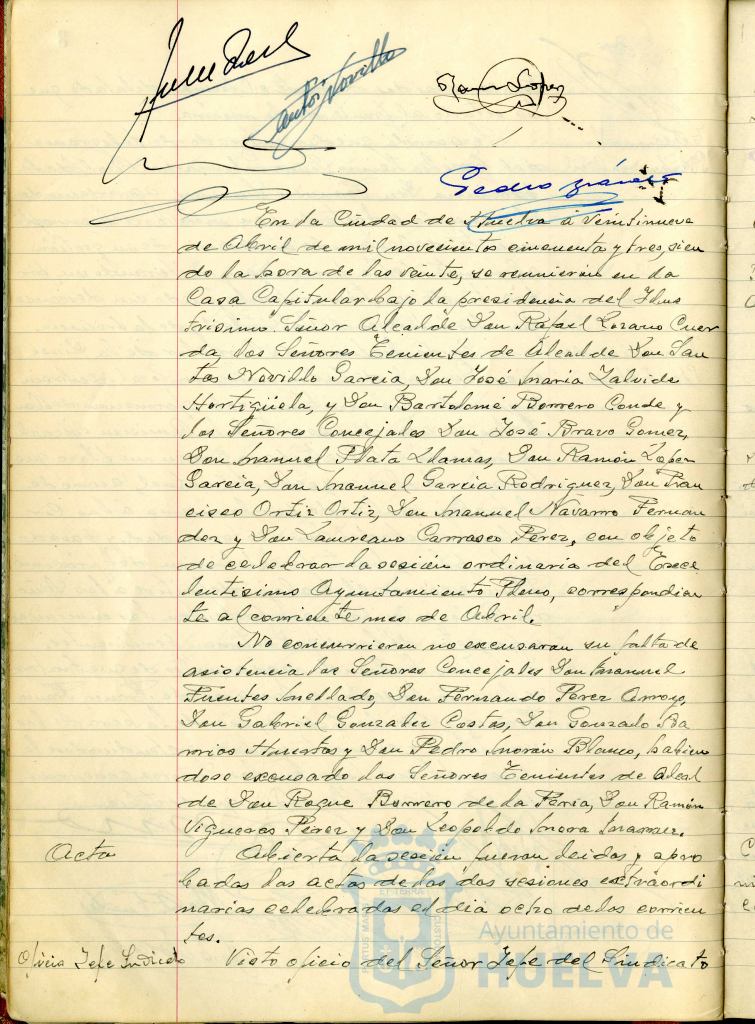 Santos Novillo
Ramon Lopez
Pedro
En la Ciudad de Huelva a veintinueve
de Abril de mil novecientos cincuenta y tres, sien
do la hora de las veinte, se reunieron en la
Casa Capitular bajo la presidencia del Ilus
trisimo Señor Alcalde Don Rafael Lozano Cuer
da, los Señores Tenientes de Alcalde Don San
tos Novillo Garcia, Don José Maria Zalvide
Hortigüela, y Don Bartolomé Borrero Conde y
los Señores Concejales Don José Bravo Gomez,
Don Manuel Plata Llamas, Don Ramón López
Garcia, Don Manuel Garcia Rodriguez, Don Fran
cisco Ortiz Ortiz, Don Manuel Navarro Fernan
dez y Don Laureano Carrasco Perez, con objeto
de celebrar la sesión ordinaria del Exce
lentisimo Ayuntamiento Pleno, correspondien
te al corriente mes de Abril.
No concurrieron no excusaron su falta de
asistencia los Señores Concejales Don Manuel
Fuentes Mellado, Don Fernando Perez Arroyo,
Don Gabriel Gonzalez Costas, Don Gonzalo Ba
rrios Huertos y Don Pedro Morón Blanco, habien
dose excusado los Señores Tenientes de Alcal
de Don Roque Borrero de la Feria, Don Ramón
Vigueras Perez y Don Leopoldo Mora
Acta
Abierta la sesión fueron leidas y apro
badas las actas de las dos sesiones extraordi
narias celebradas el dia octro de los corrien
tes.
Oficio Jefe Sindicato
Visto oficio del Señor Jefe del Sindicato
Ayuntamiento de
HUELVA